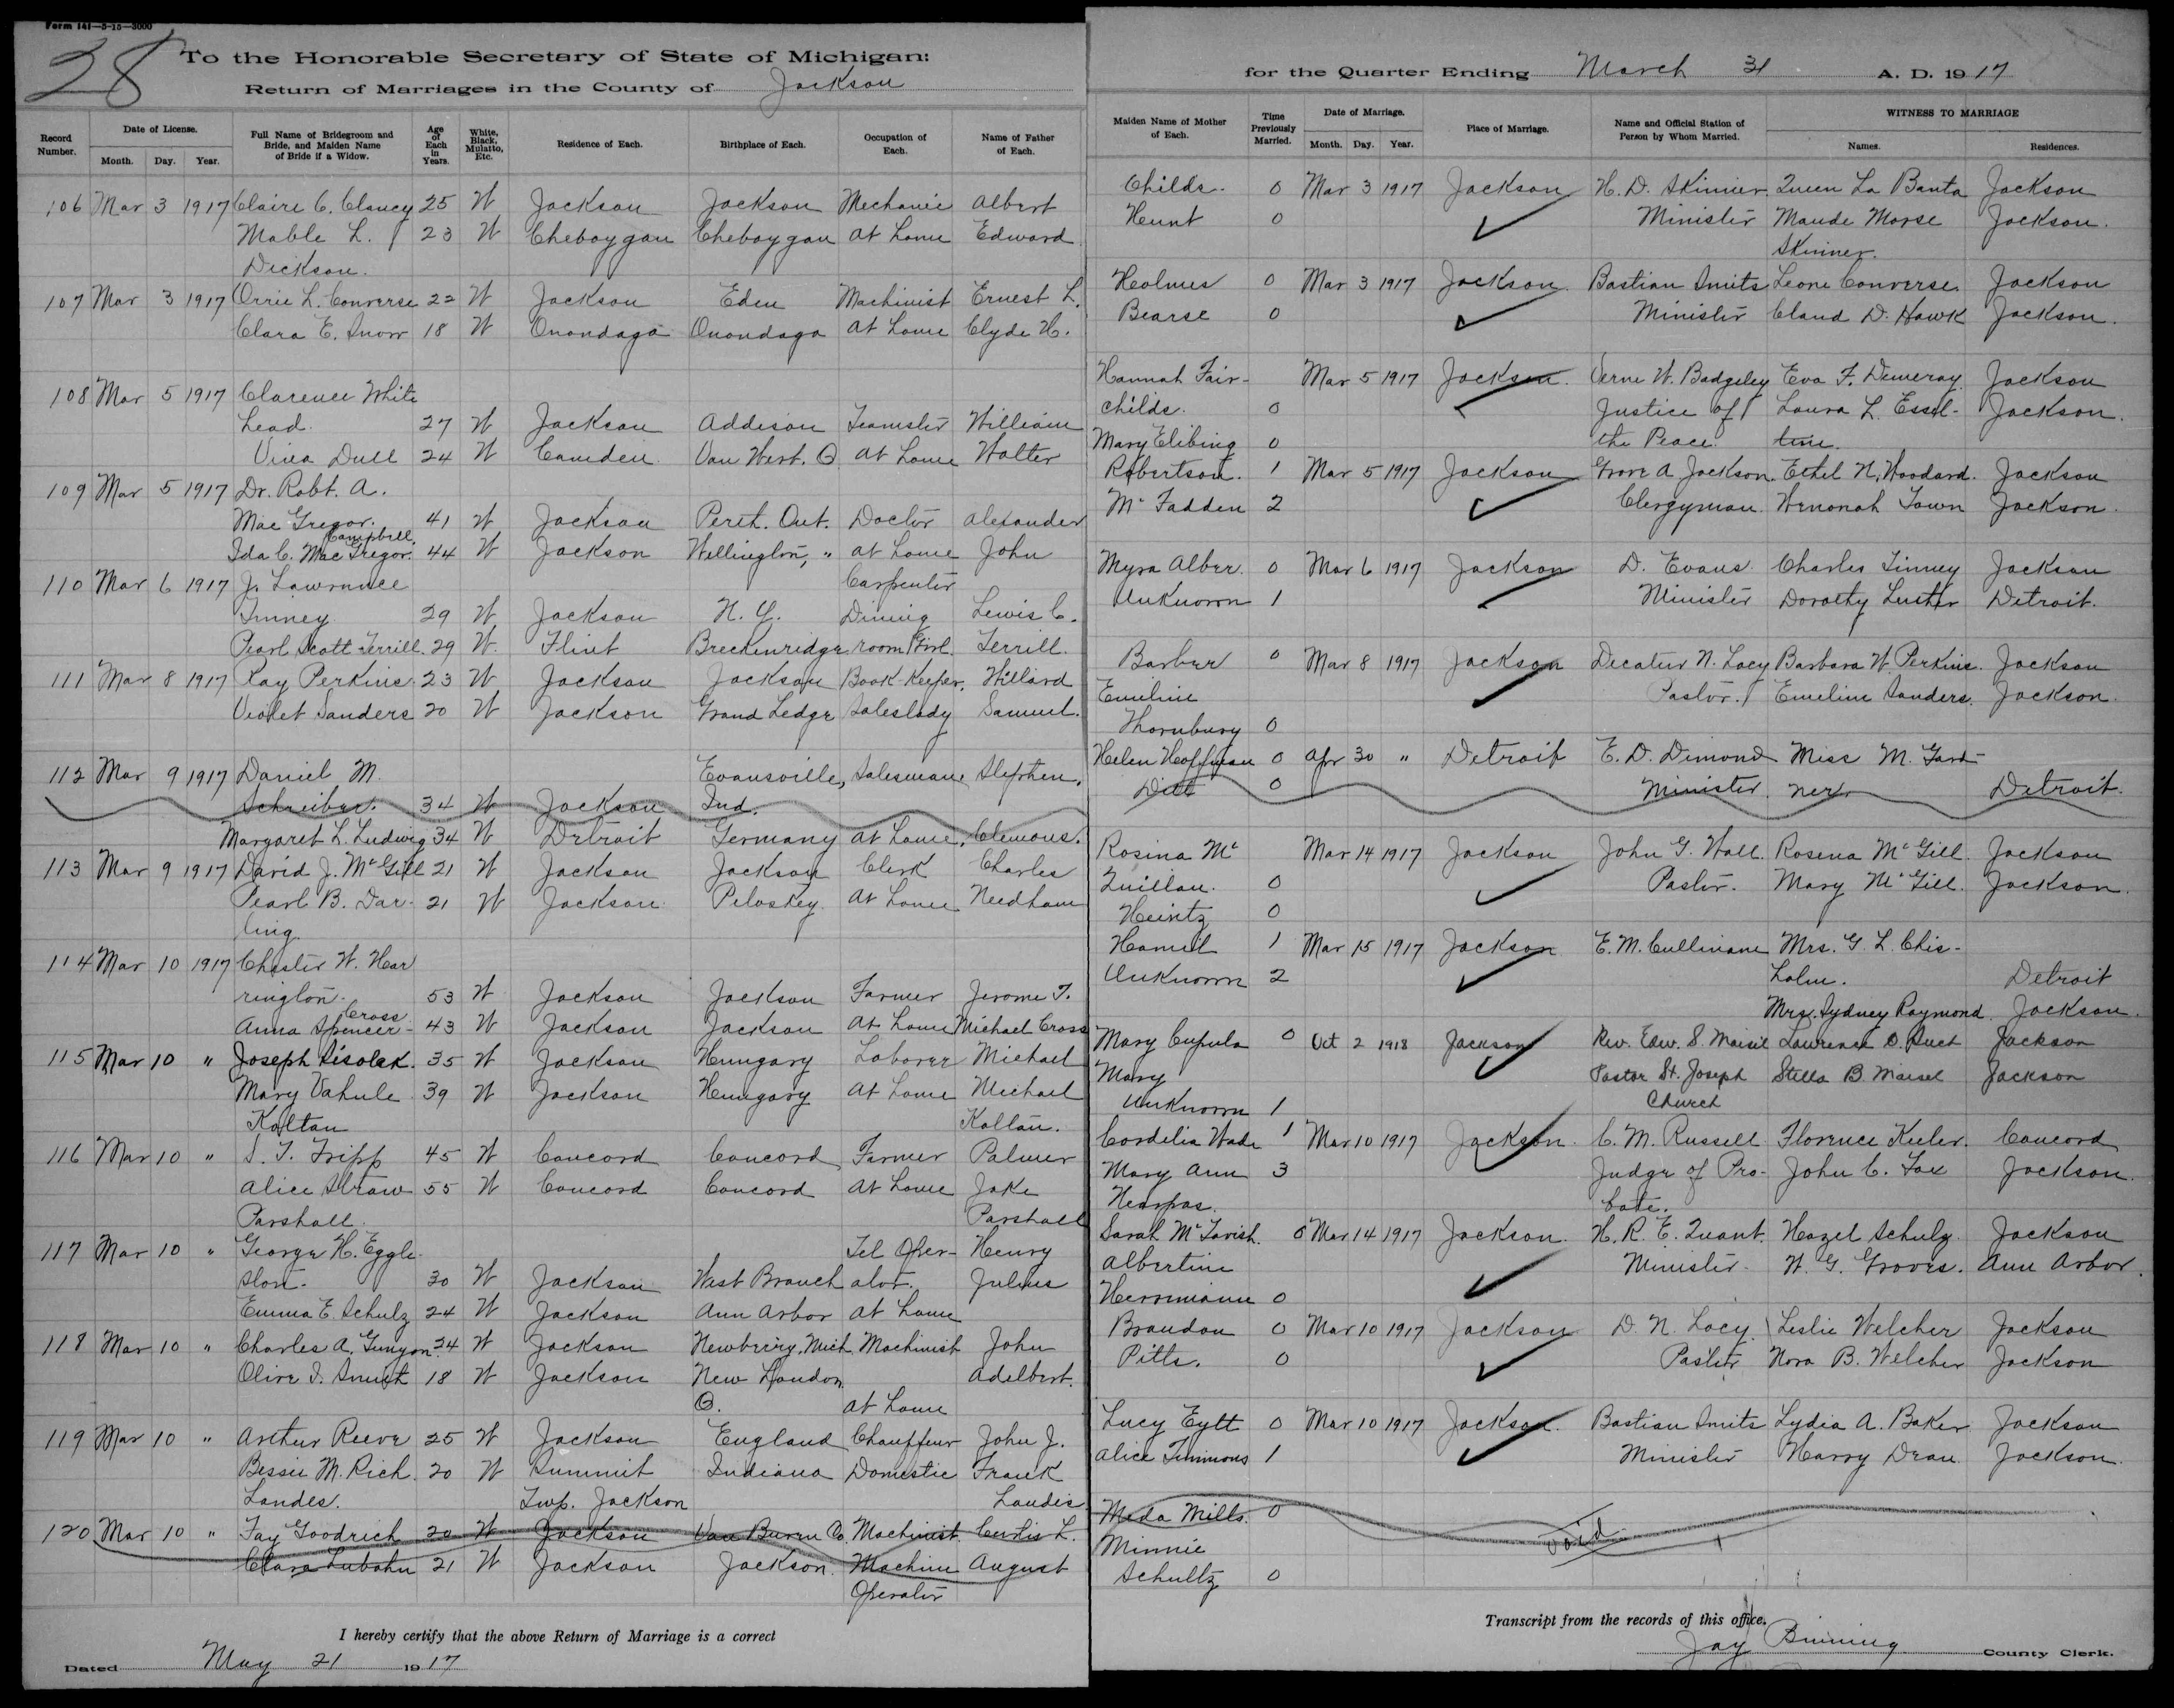 Form 141—5-15—3000
28
To the Honorable Secretary of State of Michigan:
Return of Marriages in the County of Jackson
for the Quarter Ending March 31 A. D. 1917
Record Number. Date of License. Month. Day. Year. Full Name of Bridegroom and Bride, and Maiden Name of Bride if a Widow. Age of Each in Years. White, Black, Mulatto, Etc. Residence of Each. Birthplace of Each. Occupation of Each. Name of Father of Each.
Maiden Name of Mother of Each. Time Previously Married. Date of Marriage. Month. Day. Year. Place of Marriage. Name and Official Station of Person by Whom Married. WITNESS TO MARRIAGE Names. Residences.
106 Mar 3 1917 Claire C. Clancy 25 W Jackson Jackson Mechanic Albert Childs. 0 Mar 3 1917 Jackson H. D. Skinner Queen La Banta Jackson
Mable L. 23 W Cheboygan Cheboygan At home Edward Hunt 0 Minister Maude Morse Jackson.
Dickson. Skinner.
107 Mar 3 1917 Orrie L. Converse 22 W Jackson Eden Machinist Ernest L. Holmes 0 Mar 3 1917 Jackson. Bastian Smits Leone Converse. Jackson
Clara E. Snow 18 W Onondaga Onondaga At home Clyde H. Bearse 0 Minister Claud D. Hawk Jackson.
108 Mar 5 1917 Clarence White Hannah Fair- Mar 5 1917 Jackson. Verne W. Badgeley Eva F. Demeray. Jackson
head. 27 W Jackson Addison Teamster William childs. 0 Justice of Laura L. Essel- Jackson.
Vina Dull 24 W Camden Van Wert. O. At home Walter Mary Elibing 0 the Peace. tine.
109 Mar 5 1917 Dr. Robt. A. Robertson. 1 Mar 5 1917 Jackson Grove A Jackson. Ethel N. Woodard. Jackson
Mac Gregor. 41 W Jackson Perth. Ont. Doctor Alexander McFadden 2 Clergyman. Wenonah Town Jackson.
Campbell.
Ida C. MacGregor. 44 W Jackson Wellington, " At home John
110 Mar 6 1917 J. Lawrence Carpenter Myra Alber. 0 Mar 6 1917 Jackson D. Evans. Charles Tinney Jackson
Tinney 29 W Jackson N. Y. Dining Lewis C. Unknown 1 Minister Dorothy Luster Detroit.
Pearl Scott Terrill. 29 W. Flint Breckenridge room Girl. Terrill.
111 Mar 8 1917 Ray Perkins. 23 W Jackson Jackson Book-Keeper. Willard Barber 0 Mar 8 1917 Jackson Decatur N. Lacy Barbara W. Perkins. Jackson
Violet Sanders 20 W Jackson Grand Ledge Saleslady Samuel. Emeline Pastor. Emeline Sanders. Jackson.
Thornbury 0
112 Mar 9 1917 Daniel M. Evansville, Salesman Stephen. Helen Hoffman 0 Apr 30 " Detroit E. D. Dimond Miss M. Gard-
Schreiber. 34 W Jackson Ind. Ditt 0 Minister ner Detroit.
Margaret L. Ludwig 34 W Detroit Germany At home. Clemons.
113 Mar 9 1917 David J. McGill 21 W Jackson Jackson Clerk Charles Rosina Mc Mar 14 1917 Jackson John G. Hall. Rosena McGill. Jackson
Pearl B. Dar- 21 W Jackson. Petoskey. At home Needham Quillan. 0 Pastor. Mary McGill. Jackson.
ling. Heintz 0
114 Mar 10 1917 Chester W. Har Hamil 1 Mar 15 1917 Jackson E. M. Cullinane Mrs. G. L. Chis-
rington. 53 W Jackson Jackson Farmer Jerome T. Unknown 2 holm. Detroit
Cross
Anna Spencer- 43 W Jackson Jackson At home Michael Cross Mrs. Sydney Raymond. Jackson.
115 Mar 10 " Joseph Sisolak. 35 W Jackson Hungary Laborer Michael Mary Cupula 0 Oct 2 1918 Jackson Rev. Edw. S. Maisel Laurence D. Jackson
Mary Vahule 39 W Jackson Hungary At home Michael Mary Pastor St. Joseph Stella B. Maisel Jackson
Koltan Koltan. Unknown 1 Church
116 Mar 10 " S. T. Tripp 45 W Concord Concord Farmer Palmer Cordelia Wade 1 Mar 10 1917 Jackson. C. M. Russell Florence Keeler. Concord
Alice Straw 55 W Concord Concord At home Jake Mary Ann 3 Judge of Pro- John C. Fox Jackson.
Parshall. Parshall bate.
117 Mar 10 " George H. Eggle- Tel Oper- Henry Sarah McTavish. 0 Mar 14 1917 Jackson. H. R. E. Quant. Hazel Schulz Jackson
ston. 30 W Jackson West Branch ator. Julius Albertine Minister. W. G. Groves. Ann Arbor.
Emma E. Schulz 24 W Jackson Ann Arbor At home Herrmann 0
118 Mar 10 " Charles A. Gunyon 24 W Jackson Newberry. Mich. Machinist John Brandon 0 Mar 10 1917 Jackson D. N. Lacy. Leslie Welcher Jackson
Olive I. Smith 18 W Jackson New London Adelbert. Pitts. 0 Pastor Nora B. Welcher Jackson
O. At home
119 Mar 10 " Arthur Reeve 25 W Jackson England Chauffeur John J. Lucy Eytt 0 Mar 10 1917 Jackson. Bastian Smits Lydia A. Baker Jackson
Bessie M. Rich. 20 W Summit Indiana Domestic Frank Alice Timmons 1 Minister Harry Dean. Jackson.
Landes. Twp. Jackson Landis
120 Mar 10 " Fay Goodrich 20 W Jackson Van Buren Co. Machinist. Curtis L. Meda Mills. 0 Void
Clara Lubahn 21 W Jackson Jackson. Machine August Minnie
Operator Schultz 0
I hereby certify that the above Return of Marriage is a correct Transcript from the records of this office.
Dated May 21 1917 County Clerk.